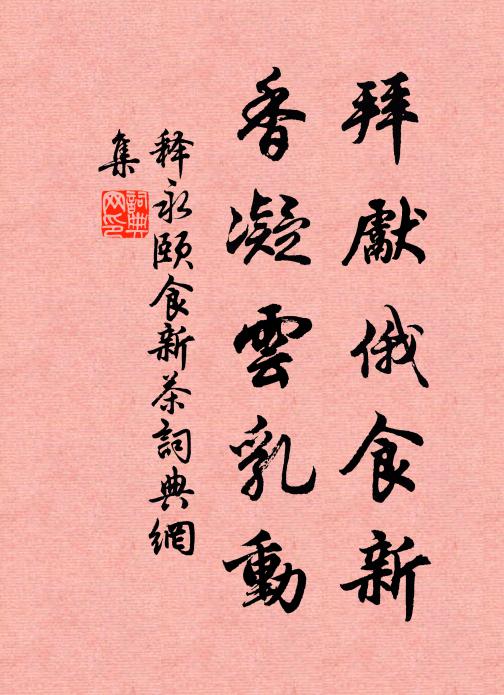 拜獻俄食新
香凝雲乳動
释永颐食新茶詞典網
集
詞典
网印